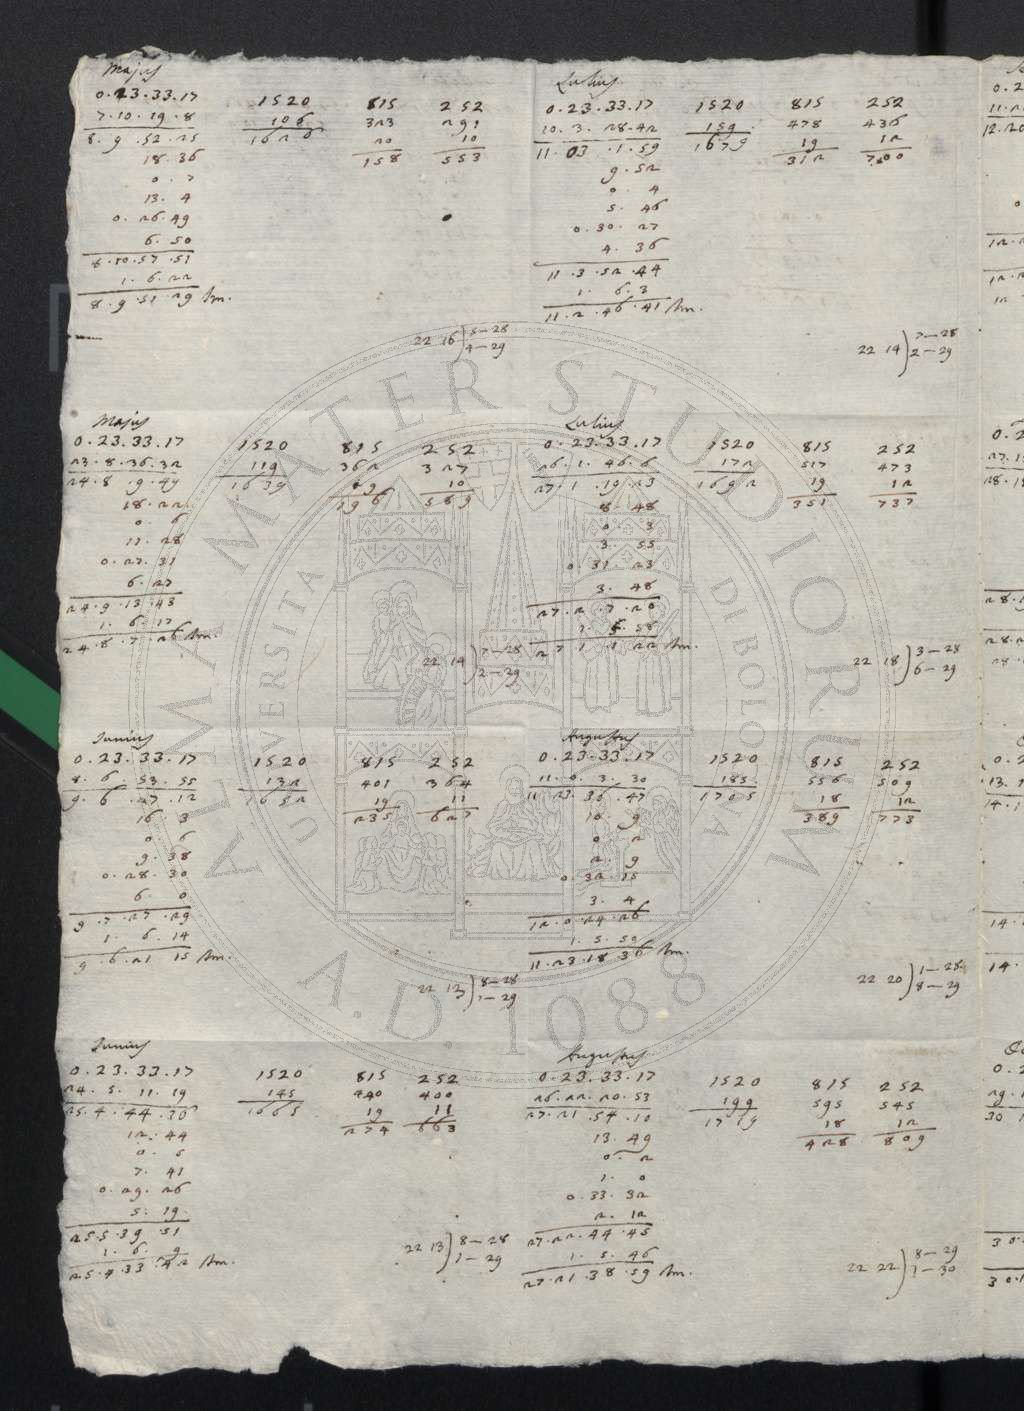 Majus
0.23.33.17 1520 815 252
7.10.19.8 106 323 291
8.9.52.25 1626 20 10
18.36 158 553
0.7
13.4
0.26.49
6.50
8.10.57.51
1.6.22
8.9.51.29
22 16 ) 5—28
4—29
Majus
0.23.33.17 1520 815 252
23.8.36.32 119 362 327
24.8.9.49 1639 10
18.22 196 589
0.6
11.28
0.27.31
6.27
24.9.13.43
1.6.17
24.8.7.26
22 14 ) 7—28
2—29
Junius
0.23.33.17 1520 815 252
8.6.53.55 132 401 364
9.6.27.12 1652 19 11
16.3 235 627
0.6
9.38
0.28.30
6.0
9.7.27.29
1.6.14
9.6.21.15
22 13 ) 8—28
1—29
Junius
0.23.33.17 1520 815 252
24.5.11.19 145 440 400
25.4.44.36 1665 19 11
12.44 274 663
7.41
0.29.26
5.19
25.5.39.51
1.6.9
25.4.33.42
22 13 ) 8—28
1—29
Lulius
0.23.33.17 1520 815 252
10.3.28.42 159 478 436
11.03.1.59 1679 19 12
9.52 312 700
0.4
5.46
0.30.27
4.36
11.3.52.44
1.6.3
11.2.46.41
22 14 ) 7—28
2—29
Lulius
0.23.33.17 1520 815 252
26.1.46.6 172 517 473
27.1.19.23 1692 19 12
8.48 351 737
0.3
3.55
0.31.23
3.48
27.2.7.20
27.1.1.22
22 18 ) 3—28
6—29
Augustus
0.23.33.17 1520 815 252
11.0.3.30 185 556 509
11.23.36.47 1705 18 12
10.9 389 773
0.2
2.9
0.32.15
3.4
12.0.24.26
1.5.50
11.23.18.36
22 20 ) 1—28
8—29
Augustus
0.23.33.17 1520 815 252
26.22.20.53 199 595 545
27.21.54.10 1719 18 12
13.49 428 809
0.2
1.0
0.33.32
2.12
27.22.44.45
1.5.46
27.21.38.59
22 22 ) 8—29
1—30
ALMA MATER STUDIORUM
A.D. 1088
UNIVERSITÀ DI BOLOGNA